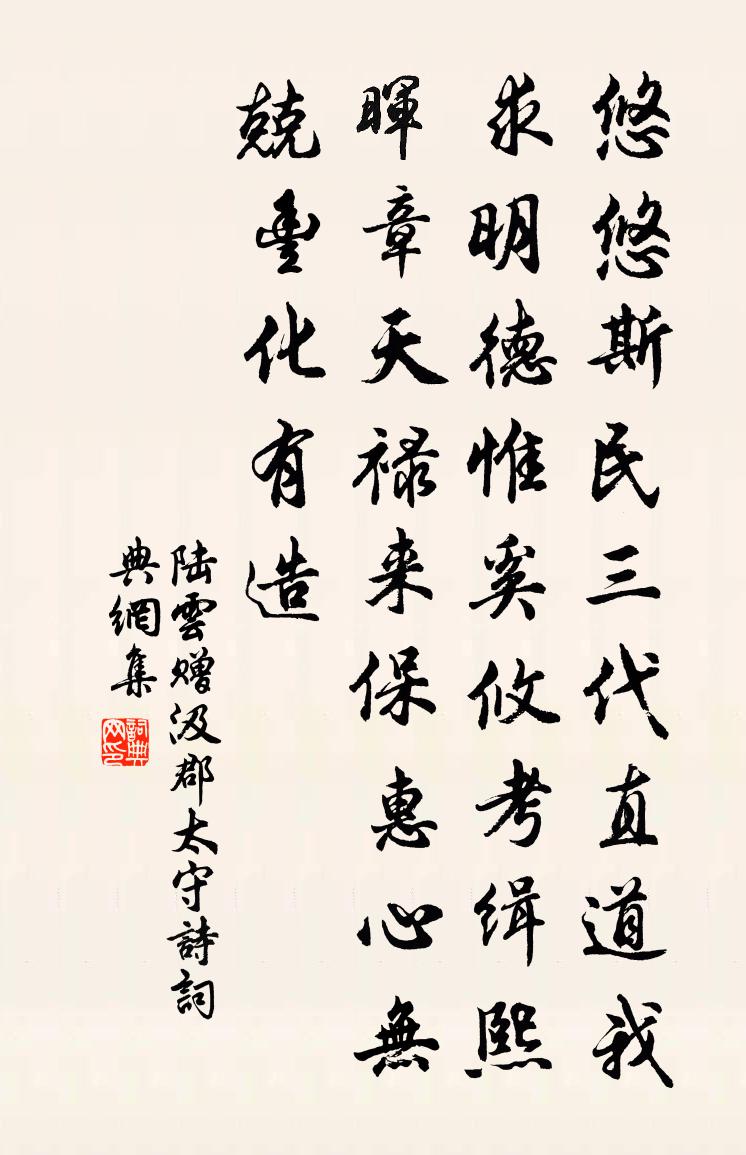 悠悠斯民三代直道我
求明德惟奚攸考缉熙
暉章天禄来保惠心無
兢豊化有造
陆雲赠汲郡太守詩詞
典網集
詞典网印